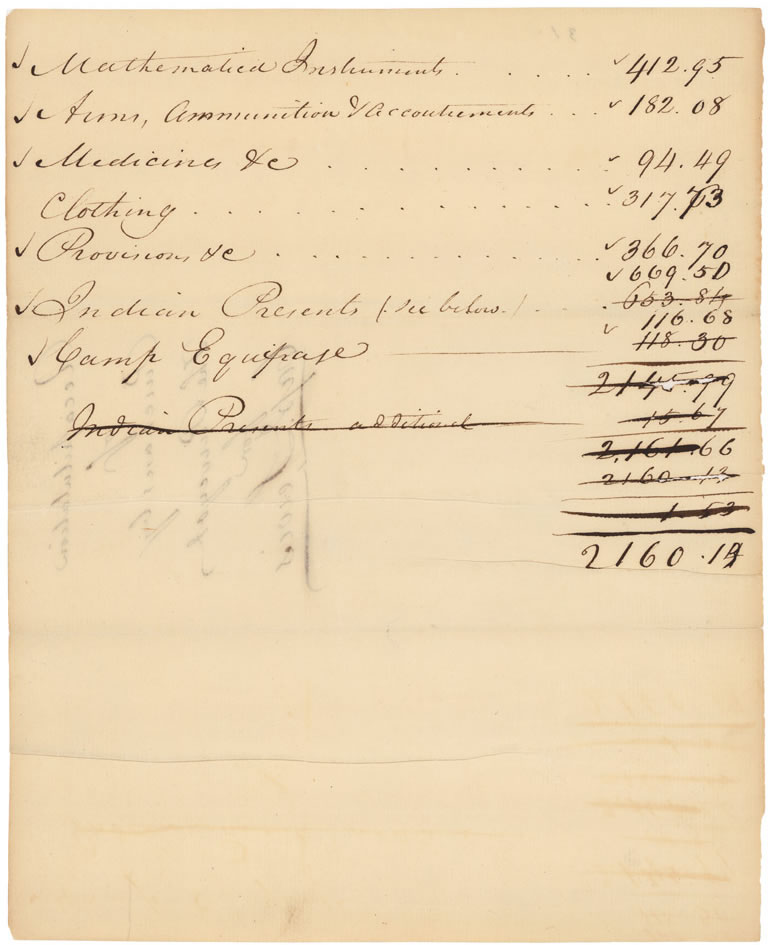 ✓ Mathematical Instruments. . . . . . ✓ 412.95
✓ Arms, Ammunition & Accoutrements . . . ✓ 182.08
✓ Medicines &c . . . . . . . . . . . ✓ 94.49
Clothing . . . . . . . . . . . . . . . ✓ 317.73
✓ Provisions &c . . . . . . . . . . . . ✓ 366.70
✓ 669.50
✓ Indian Presents (see below.) . . . 653.84
✓ 116.68
✓ Camp Equipage 118.30
2145.99
Indian Presents additional 15.67
2,161.66
2160.13
1.53
2160.14